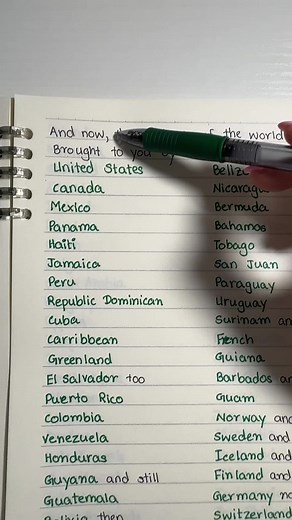 And now, the world
Brought to you by
United States
Canada
Mexico
Panama
Haiti
Jamaica
Peru
Republic Dominican
Cuba
Carribbean
Greenland
El Salvador too
Puerto Rico
Colombia
Venezuela
Honduras
Guyana and still
Guatemala
then
Nicaragua
Bermuda
Bahamas
Tobago
San Juan
Paraguay
Uruguay
Surinam
French
Guiana
Barbados
Guam
Norway and
Sweden and
Iceland and
Finland and
Germany
Switzerland